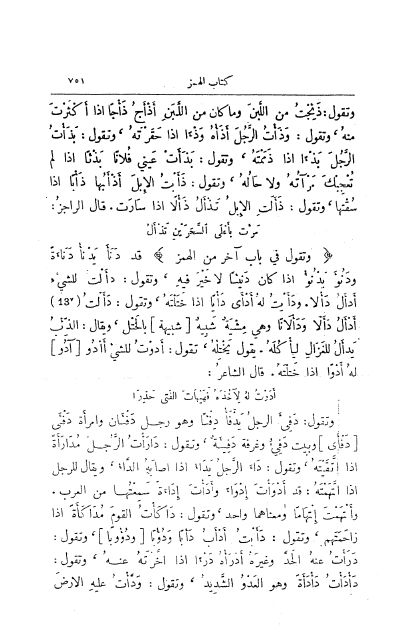 كتاب الهمز ٧٥١
وتقول: ذَئِجْتُ من اللبن وما كان من اللبن أَذْأَجُ ذَأْجًا اذا أكثرتَ
منه، وتقول: وَذَأْتُ الرَّجُلَ أَذَأُهُ وَذْءًا اذا حقرته، وتقول: بَذَأْتُ
الرَّجُلَ بَذْءًا اذا ذَمَمْتَهُ، وتقول: بَذَأَتْ عيني فلانًا بَذْءًا اذا لم
تُعجبك مَرْآتُه ولا حاله، وتقول: ذَأَبْتُ الإبلَ أَذْأَبُها ذَأْبًا اذا
سُقْتَها، وتقول: ذَأَلَتِ الإبلُ تَذْأَلُ ذَأْلًا اذا سارت. قال الراجز:
مرَّت بأعلى السَّحَرَيْنِ تذْأَلُ
﴿ وتقول في باب آخر من الهمز ﴾ قد دَنَأَ يَدْنَأُ دَناءَةً
ودَنُؤَ يَدْنُؤُ اذا كان دَنيئًا لا خَيرَ فيه، وتقول: دأَلْتُ للشيء
أدْأَلُ دَأْلا. ودَأَيْتُ له أَدْأَى دَأْيًا اذا خَتَلْتَه، وتقول: دَأَلْتُ (13ᵛ)
أَدْأَلُ دَأْلًا ودَأَلانًا وهي مِشْيَةٌ شَبيهٌ [شبيهة] بالخَتْل، ويقال: الذئب
يدأل للغزال ليأكله. يقول يختِلُه، تقول: أَدَوْتُ للشيْ أأدو [آدُو]
له أَدْوًا اذا خَتَلْتَه. قال الشاعر:
أَدَوْتُ له لِآخُذَهُ فَهَيْهاتَ الفتى حَذِرا
وتقول: دَفِئَ الرجلُ يَدْفَأُ دِفْئًا وهو رجل دَفْآن وامرأة دَفْئَى
[دَفْأَى] وبيت دَفيءٌ وغرفة دَفيئة، وتقول: دارَأْتُ الرَّجُلَ مُدارَأَةً
اذا اتَّقَيْتَه، وتقول: داءَ الرَّجُلُ يَداءُ اذا اصابه الداء، ويقال للرجل
اذا اتَّهَمْتَه: قد أَدْوَأْتَ إدْواءً وأَدَأْتَ إداءَةً سمعتُها من العرب.
وأَتْهَمْتَ إِتْهامًا ومعناهما واحد، وتقول: داكَأْتُ القومَ مُداكَأَةً اذا
زاحمتَهم، وتقول: دَأَبْتُ أَدْأَبُ دَأْبًا ودُؤُبًا [ودُؤوبا]، وتقول:
دَرَأْتُ عنه الحدَّ وغيرَهُ أَدْرَأُهُ دَرْءًا اذا أخَّرْتَه عنه، وتقول:
دَأْدَأْتُ دَأْدَأَةً وهو العَدْوُ الشديد، وتقول: وَدَّأْتُ عليه الارضَ